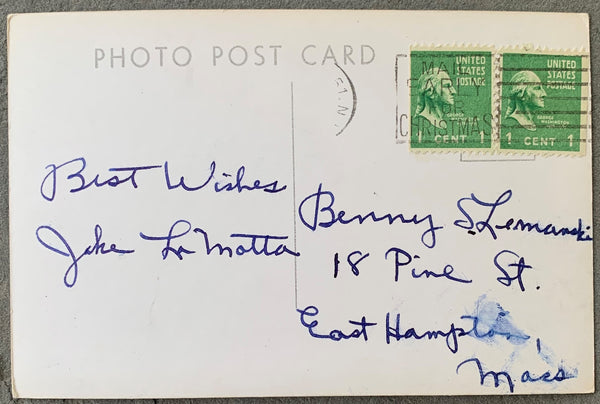 PHOTO POST CARD
MAIL
EARLY
FOR
CHRISTMAS
UNITED
STATES
POSTAGE
GEORGE
WASHINGTON
1 CENT 1
UNITED
STATES
POSTAGE
GEORGE
WASHINGTON
1 CENT 1
Best Wishes
Jake La Motta
Benny S. Lemanski
18 Pine St.
East Hampton,
Mass